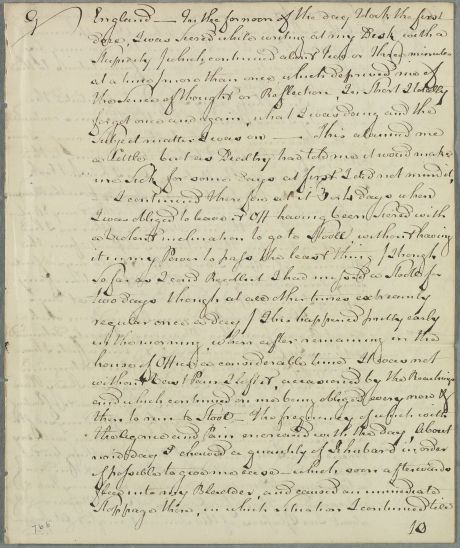 9
England — In the forenoon of the day I took the first
dose, I was seized while writing at my Desk with a
Stupidity (which continued about two or three minutes
at a time) more than once which deprived me of
the Sense of thought or Reflection, In Short I totally
forgot once and again, what I was doing and the
subject matter I was on — This alarmed me
a little but as Dealtry had told me it would make
me sick for some days at first I did not mind it,
I continued therefore at it 3 or 4 days when
I was obliged to leave it Off having been Seized with
a violent inclination to go to Stool, without having
it in my Power to pass the least thing, though
so far as I can Recollect I had missed a Stool for
two days though at all other times extreamly
regular once a day / This happened pretty early
in the morning, when after remaining in the
house of Office a considerable time I was not
without Pain I left it, occasioned by the Reachings
and which continued on me being obliged every now &
then to run to Stool — The frequency of which with
the Agony and Pain encreased with the day, About
midday I chewed a quantity of Rhubarb in order
if possible to give me ease — which soon afterwards
into my Bladder, and caused an immediate
Stoppage there, in which situation I continued till
10
766